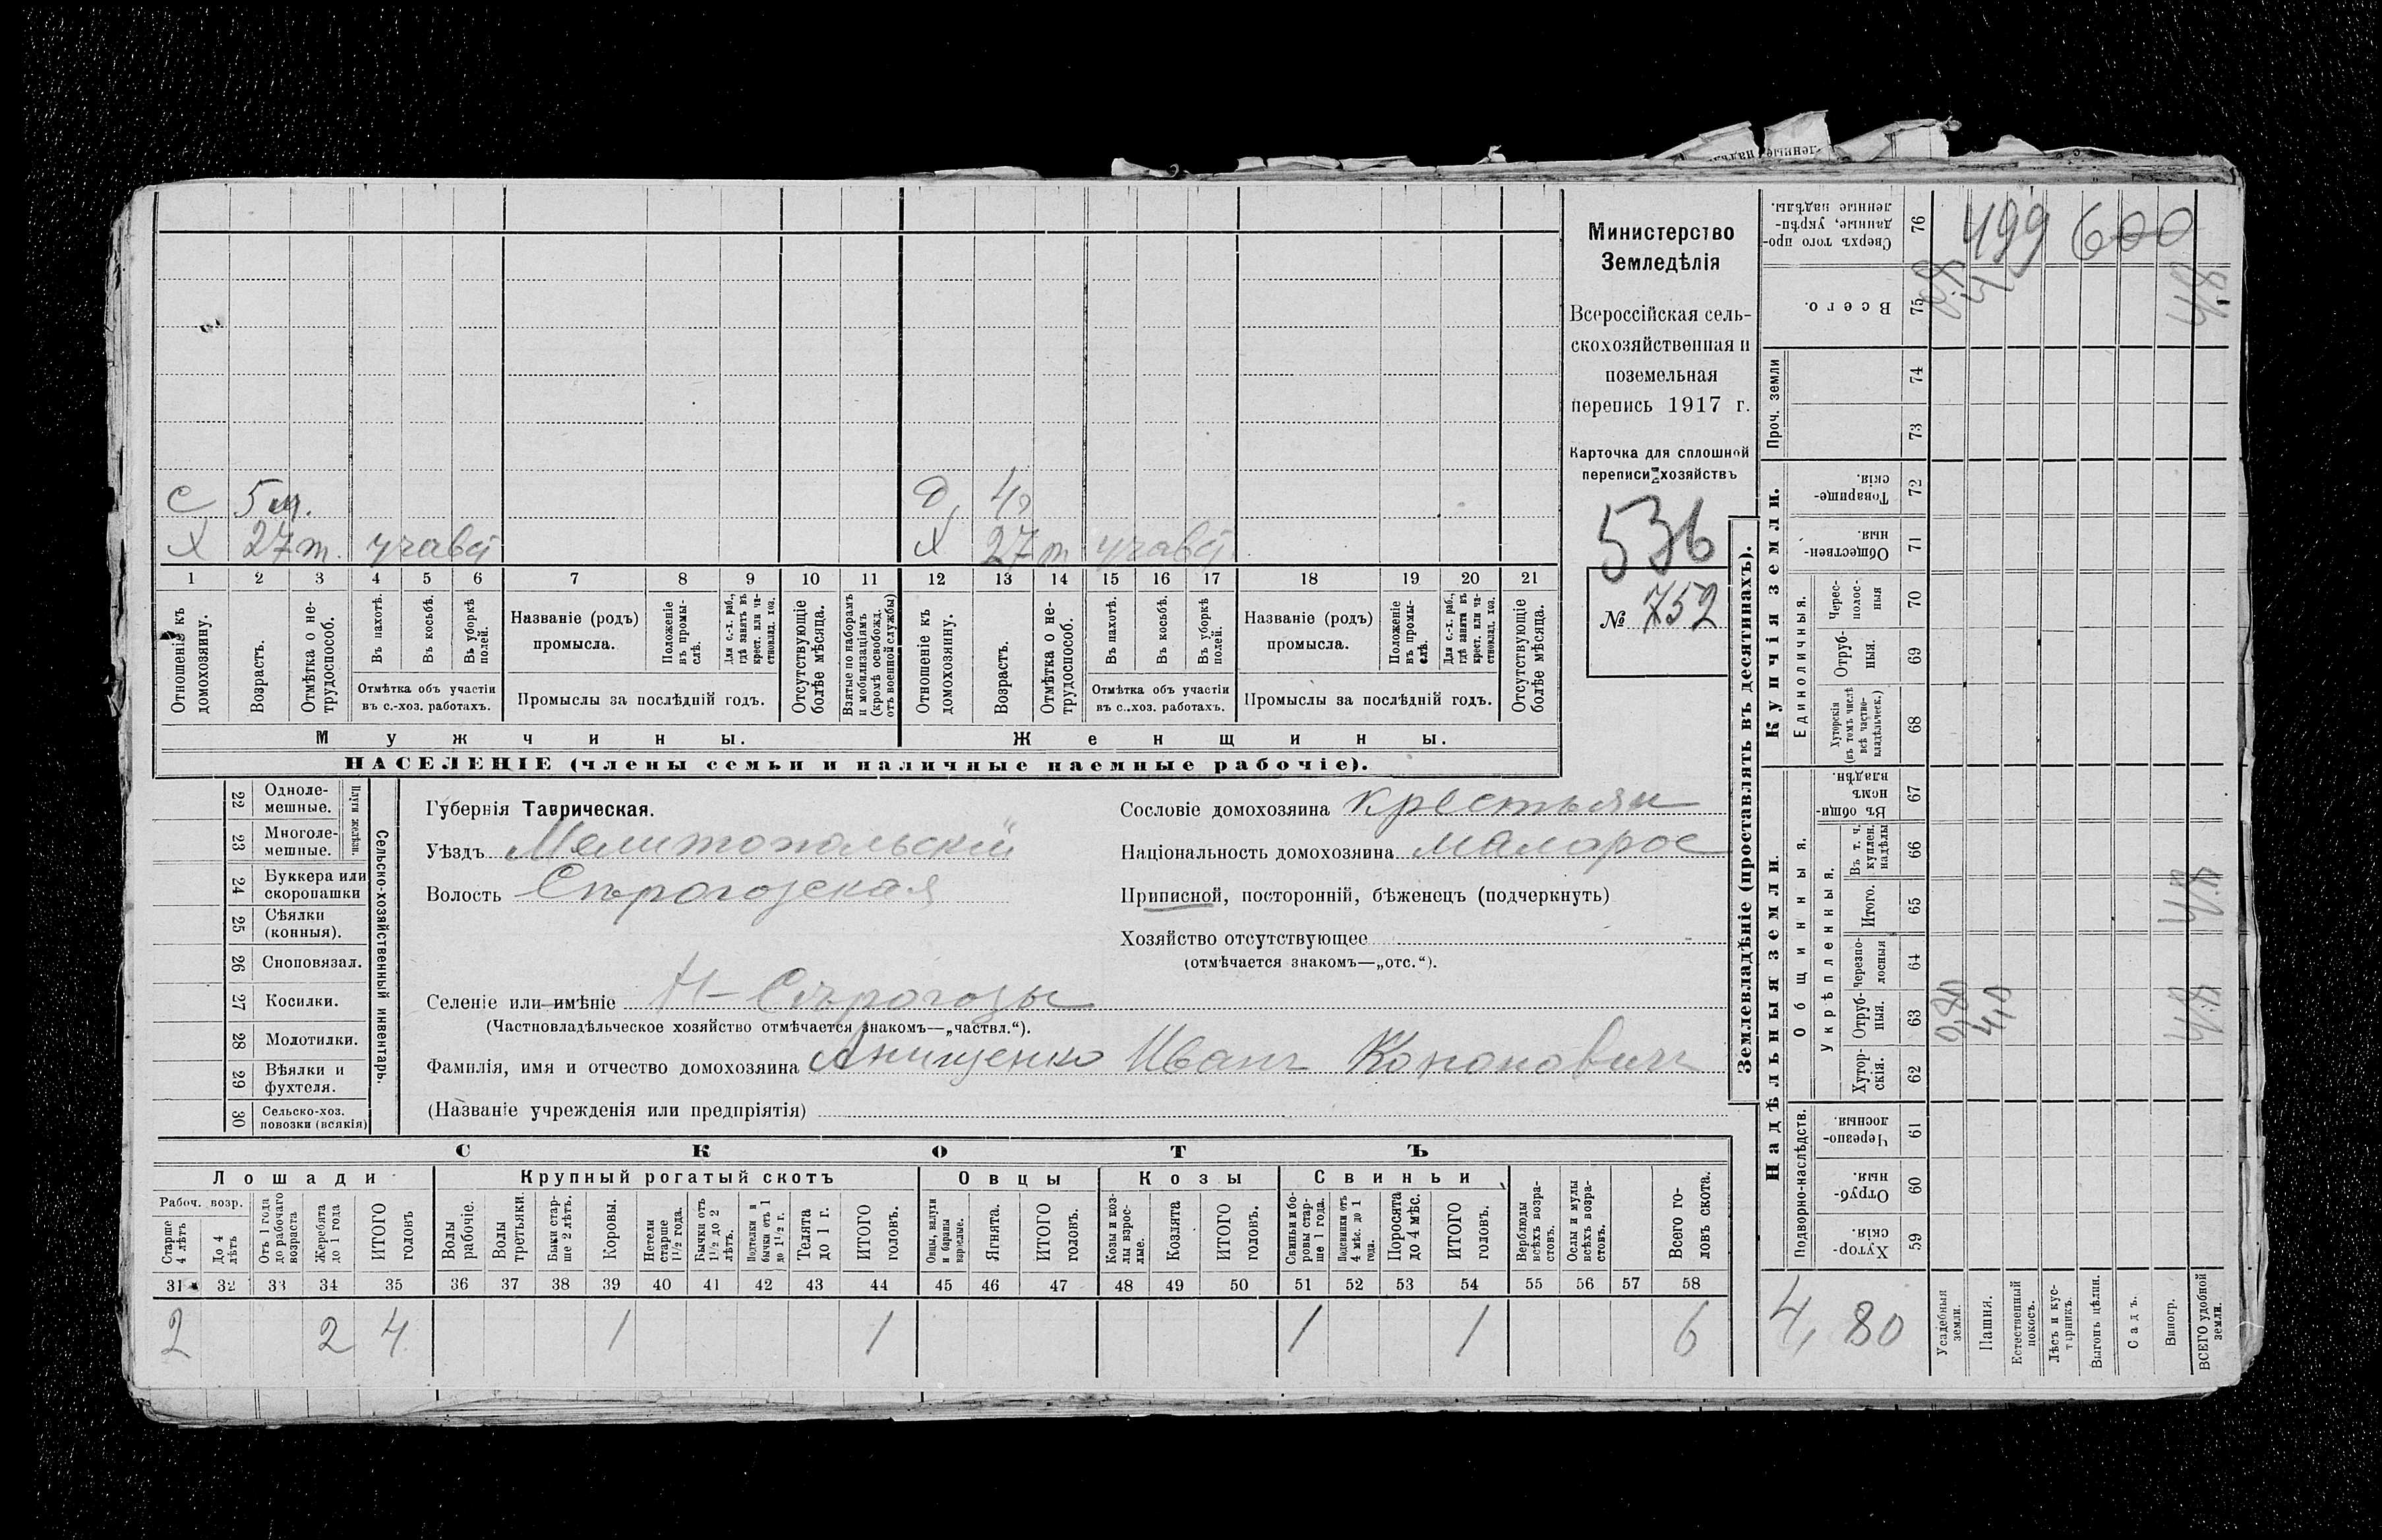 с 5 м. д. 4,
Х 27 т. участ Х 27 т участ
1 2 3 4 5 6 7 8 9 10 11 12 13 14 15 16 17 18 19 20 21
Отношеніе къ домохозяину.
Возрастъ.
Отмѣтка о не-трудоспособ.
Въ пахотѣ.
Въ косьбѣ.
Въ уборкѣ полей.
Отмѣтка объ участіи
въ с.-хоз. работахъ.
Названіе (родъ)
промысла.
Положеніе въ промы-слѣ.
Для с.-х. раб., гдѣ занятъ въ крест. или ча-стновлад. хоз.
Промыслы за послѣдній годъ.
Отсутствующіе болѣе мѣсяца.
Взятые по наборамъ и мобилизаціямъ (кромѣ освобожд. отъ военной службы)
Отношеніе къ домохозяину.
Возрастъ.
Отмѣтка о не-трудоспособ.
Въ пахотѣ.
Въ косьбѣ.
Въ уборкѣ полей.
Отмѣтка объ участіи
въ с..хоз. работахъ.
Названіе (родъ)
промысла.
Положеніе въ промы-слѣ.
Для с.-х. раб., гдѣ занята въ крест. или ча-стновлад. хоз.
Промыслы за послѣдній годъ.
Отсутствующіе болѣе мѣсяца.
Мужчины. Женщины.
НАСЕЛЕНІЕ (члены семьи и наличные наемные рабочіе).
Министерство
Земледѣлія
Всероссійская сель-
скохозяйственная и
поземельная
перепись 1917 г.
Карточка для сплошной
переписи хозяйствъ
536
№ 752
22 Одноле-мешные.
23 Многоле-мешные.
Плуги желѣзн.
24 Буккера или скоропашки
25 Сѣялки (конныя).
26 Сноповязал.
27 Косилки.
28 Молотилки.
29 Вѣялки и фухтеля.
30 Сельско-хоз. повозки (всякія)
Сельско-хозяйственный инвентарь.
Губернія Таврическая.
Уѣздъ Мелитопольскій
Волость Сѣрогозская
Селеніе или имѣніе Н-Сѣрогозы
(Частновладѣльческое хозяйство отмѣчается знакомъ—„частвл.“).
Фамилія, имя и отчество домохозяина Анищенко Иванъ Кононовичъ
(Названіе учрежденія или предпріятія)
Сословіе домохозяина крестьян
Національность домохозяина малорос
Приписной, посторонній, бѣженецъ (подчеркнуть)
Хозяйство отсутствующее
(отмѣчается знакомъ—„отс.“).
СКОТЪ
Лошади Крупный рогатый скотъ Овцы Козы Свиньи
Рабоч. возр.
Старше 4 лѣтъ
До 4 лѣтъ
Отъ 1 года до рабочаго возраста
Жеребята до 1 года
ИТОГО головъ
Волы рабочіе.
Волы третьяки.
Быки стар-ше 2 лѣтъ.
Коровы.
Нетели старше 1½ года.
Бычки отъ 1½ до 2 лѣтъ.
Подтелки и бычки отъ 1 до 1½ г.
Телята до 1 г.
ИТОГО головъ.
Овцы, валухи и бараны взрослые.
Ягнята.
ИТОГО головъ.
Козы и коз-лы взрос-лые.
Козлята
ИТОГО головъ.
Свиньи и бо-ровы стар-ше 1 года.
Подсвинки отъ 4 мѣс. до 1 года.
Поросята до 4 мѣс.
ИТОГО головъ.
Верблюды всѣхъ возра-стовъ.
Ослы и мулы всѣхъ возра-стовъ.
Всего го-ловъ скота.
31 32 33 34 35 36 37 38 39 40 41 42 43 44 45 46 47 48 49 50 51 52 53 54 55 56 57 58
2 2 4 1 1 1 1 6
Землевладѣніе (проставлять въ десятинахъ).
Сверхъ того про-данные, укрѣп-ленные надѣлы. 76
499 600
Всего. 75
Проч. земли
74
73
Купчія земли.
Товарище-скія. 72
Обществен-ныя. 71
Единоличныя.
Черес-полос-ныя 70
Отруб-ныя. 69
Хуторскія (въ томъ числѣ всѣ частно-владѣльческ.) 68
Надѣльныя земли.
Общинныя.
Въ общи-номъ владѣн. 67
Укрѣпленныя.
Въ т. ч. куплен. надѣлы 66
Итого. 65
Черезпо-лосныя 64
Отруб-ныя. 63 0,80 4,0 4,8
Хутор-скія. 62
Подворно-наслѣдств.
Черезпо-лосныя. 61
Отруб-ныя. 60
Хутор-скія. 59
4, 80
Усадебныя земли.
Пашня.
Естественный покосъ.
Лѣсъ и кус-тарникъ.
Выгонъ цѣлин.
Садъ.
Виногр.
ВСЕГО удобной земли.